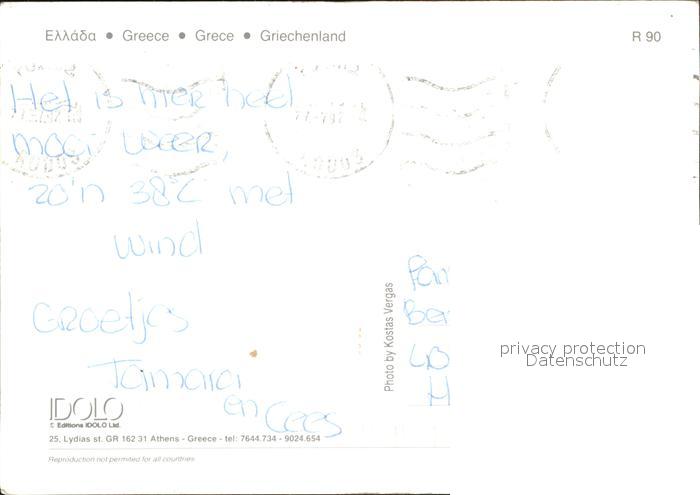 Ελλάδα • Greece • Grece • Griechenland
R 90
Het is hier heel
mooi weer,
zo'n 38°C met
wind
Groetjes
Tamara
en Cees
Photo by Kostas Vergas
privacy protection
Datenschutz
IDOLO
© Editions IDOLO Ltd.
25, Lydias st. GR 162 31 Athens - Greece - tel: 7644.734 - 9024.654
Reproduction not permited for all countries